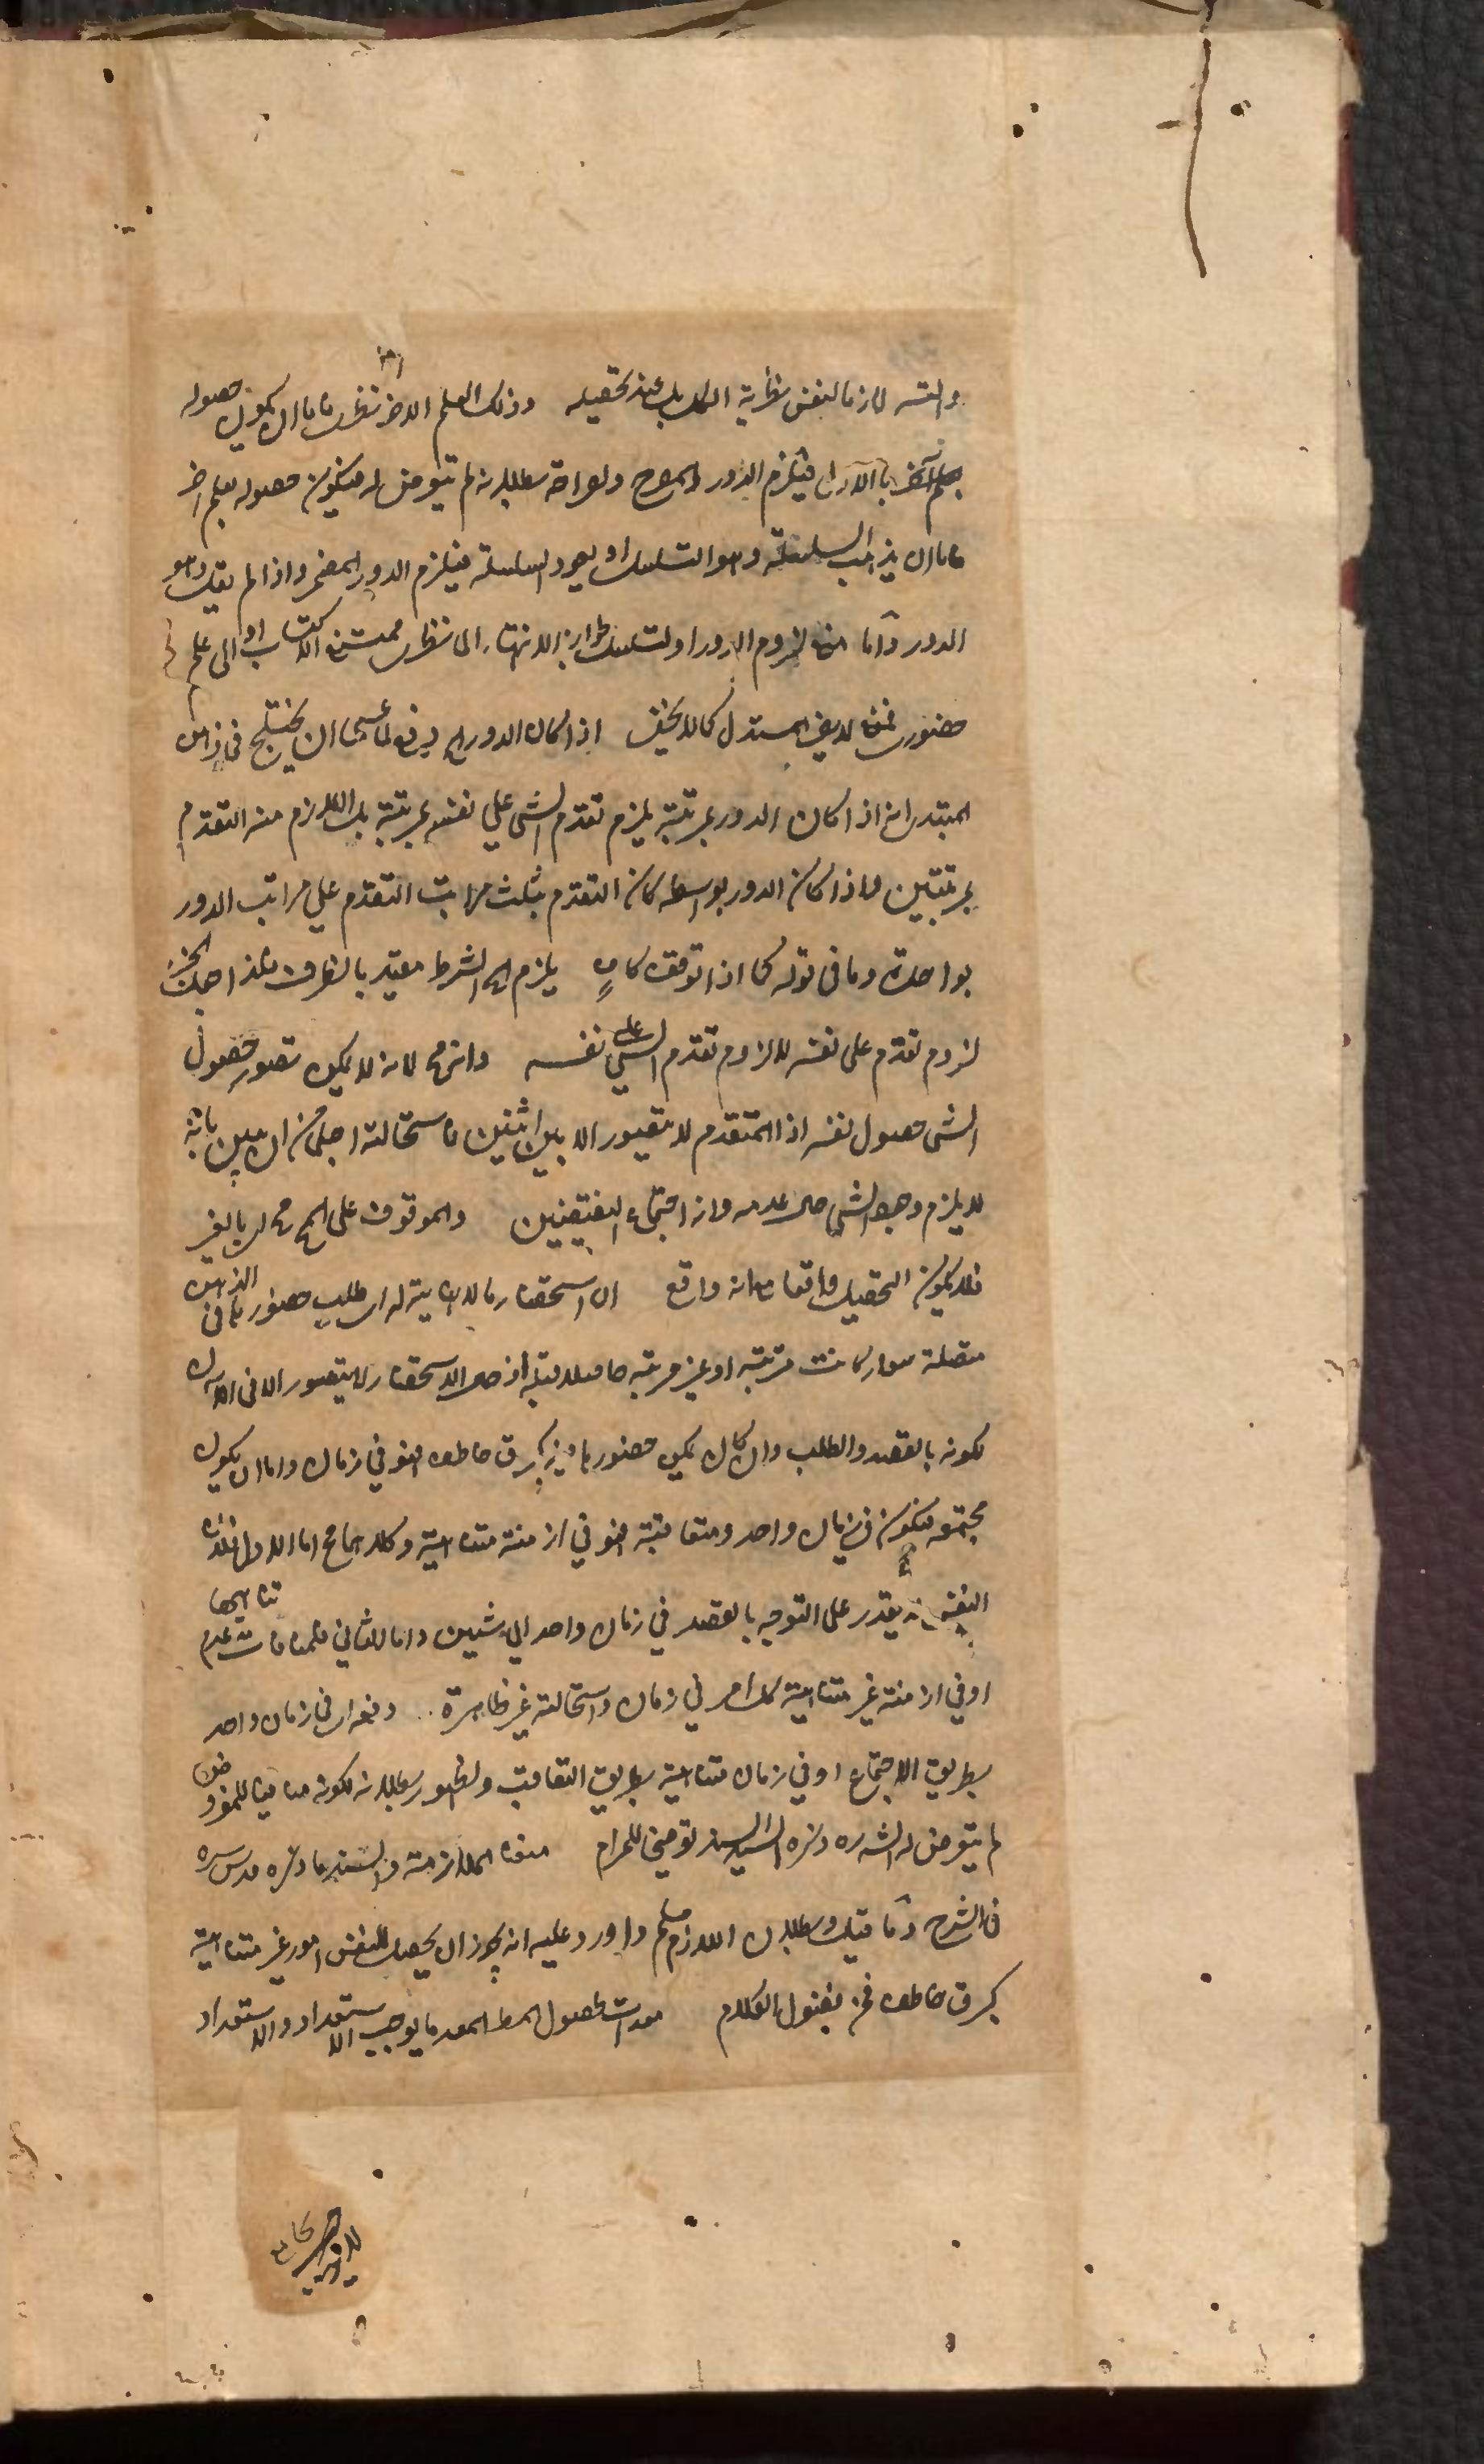 والتسـ لازما لنفس نظرية الكل بل عند تحصيله وذلك العلم الاخر نظرى فاما ان يكون حصوله
بعلم آخر بالاول فيلزم الدور المصرح ولصراحة بطلانه لم يتعرض له فيكون حصوله بعلم اخر
فاما ان يذهب السلسلة وهو التسلسل او يعود السلسلة فيلزم الدور المضمر واذا لم يقل وهو
الدور واما منع لزوم الدور او التسلسل بجواز الانتهاء الى نظرى ممتنع الاكتساب او الى علم
حضورى فمنع لا يضر المستدل كما لا يخفى اذا كان الدور الخ دفع لما عسى ان يختلج فى ذهن
المبتدى انه اذا كان الدور بمرتبة يلزم تقدم الشى على نفسه بمرتبة بل اللازم منه التقدم
بمرتبتين واذا كان الدور بواسطة كان التقدم بثلث مراتب التقدم على مراتب الدور
بواحدة وما فى قوله كما اذا توقف كاف يلزم الخ الشرط مقيد بالظرف
لزوم تقدم على نفسه للزوم تقدم الشي على نفسه وانه مح لانه لا يمكن تصور حصول
الشى حصول نفسه اذ المتقدم لا يتصور الا بين اثنين فاستحالته اجلى من ان يبين بانه
لا يلزم وجود الشى حال عدمه وانه اجتماع النقيضين والموقوف على المح مح لا بالغير
فلا يكون التحصيل واقعا مع انه واقع ان استحضار ما لا نهاية له اى طلب حضور ما فى الذهن
متصلة سواء كانت مرتبة او غير مرتبة اذ حال الاستحضار لا يتصور الا فى الآن
لكونه بالقصد والطلب وان كان يمكن حضور مباديه كبرق خاطف فهو في زمان واما ان يكون
مجتمعه فيكون فى زمان واحد ومتعاقبة فهو في ازمنة متناهية وكلاهما مح اما الاول فلان
النفس لا يقدر على التوجه بالقصد في زمان واحد الى شيئين واما الثاني فلمنافات عدم تناهيها
او في ازمنة غير متناهية كل امر في زمان واستحالته غير ظاهرة دفعه اى فى زمان واحد
بطريق الاجتماع او في زمان متناهية بطريق التعاقب ولظهور بطلانه لكونه منافيا للمفروض
لم يتعرض له الشه وذكره السيد السند توضيحا للمرام منع الملازمة والسند ما ذكره قدس سره
فى الشرح وما قيل وبطلان اللازم مسلم واورد عليه انه يجوز ان يحصل للنفس امور غير متناهية
كبرق خاطف فمن فضول الكلام معدات لحصول المط المعد ما يوجب الاستعداد والاستعداد